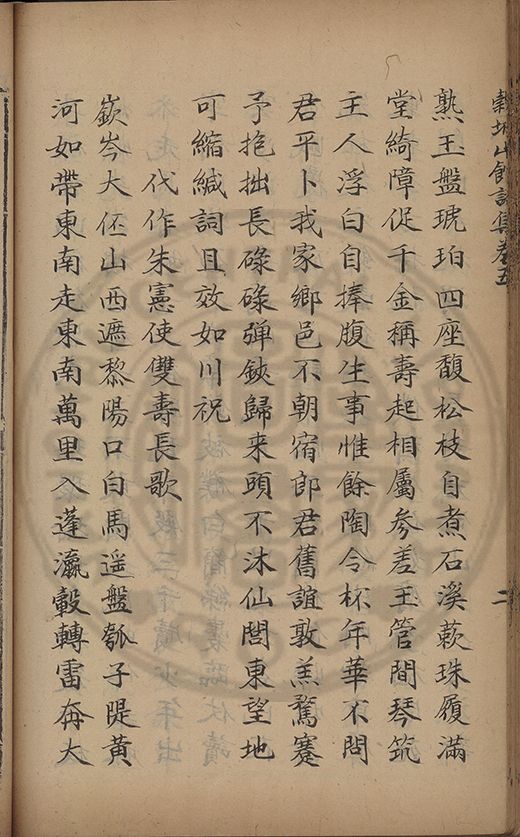 穀城山館詩集卷五
二
熟玉盤琥珀四座馥松枝自煮石溪蔌珠履滿
堂綺障促千金稱壽起相屬參差玉管間琴筑
主人浮白自捧腹生事惟餘陶令杯年華不問
君平卜我家鄉邑不朝宿郎君舊誼敦羔鶩蹇
予抱拙長碌碌弹鋏歸来頭不沐仙閭東望地
可縮緘詞且效如川祝
代作朱憲使雙壽長歌
嶔岑大伾山西遮黎陽口白馬遥盤瓠子隄黃
河如帶東南走東南萬里入蓬瀛轂轉雷奔大